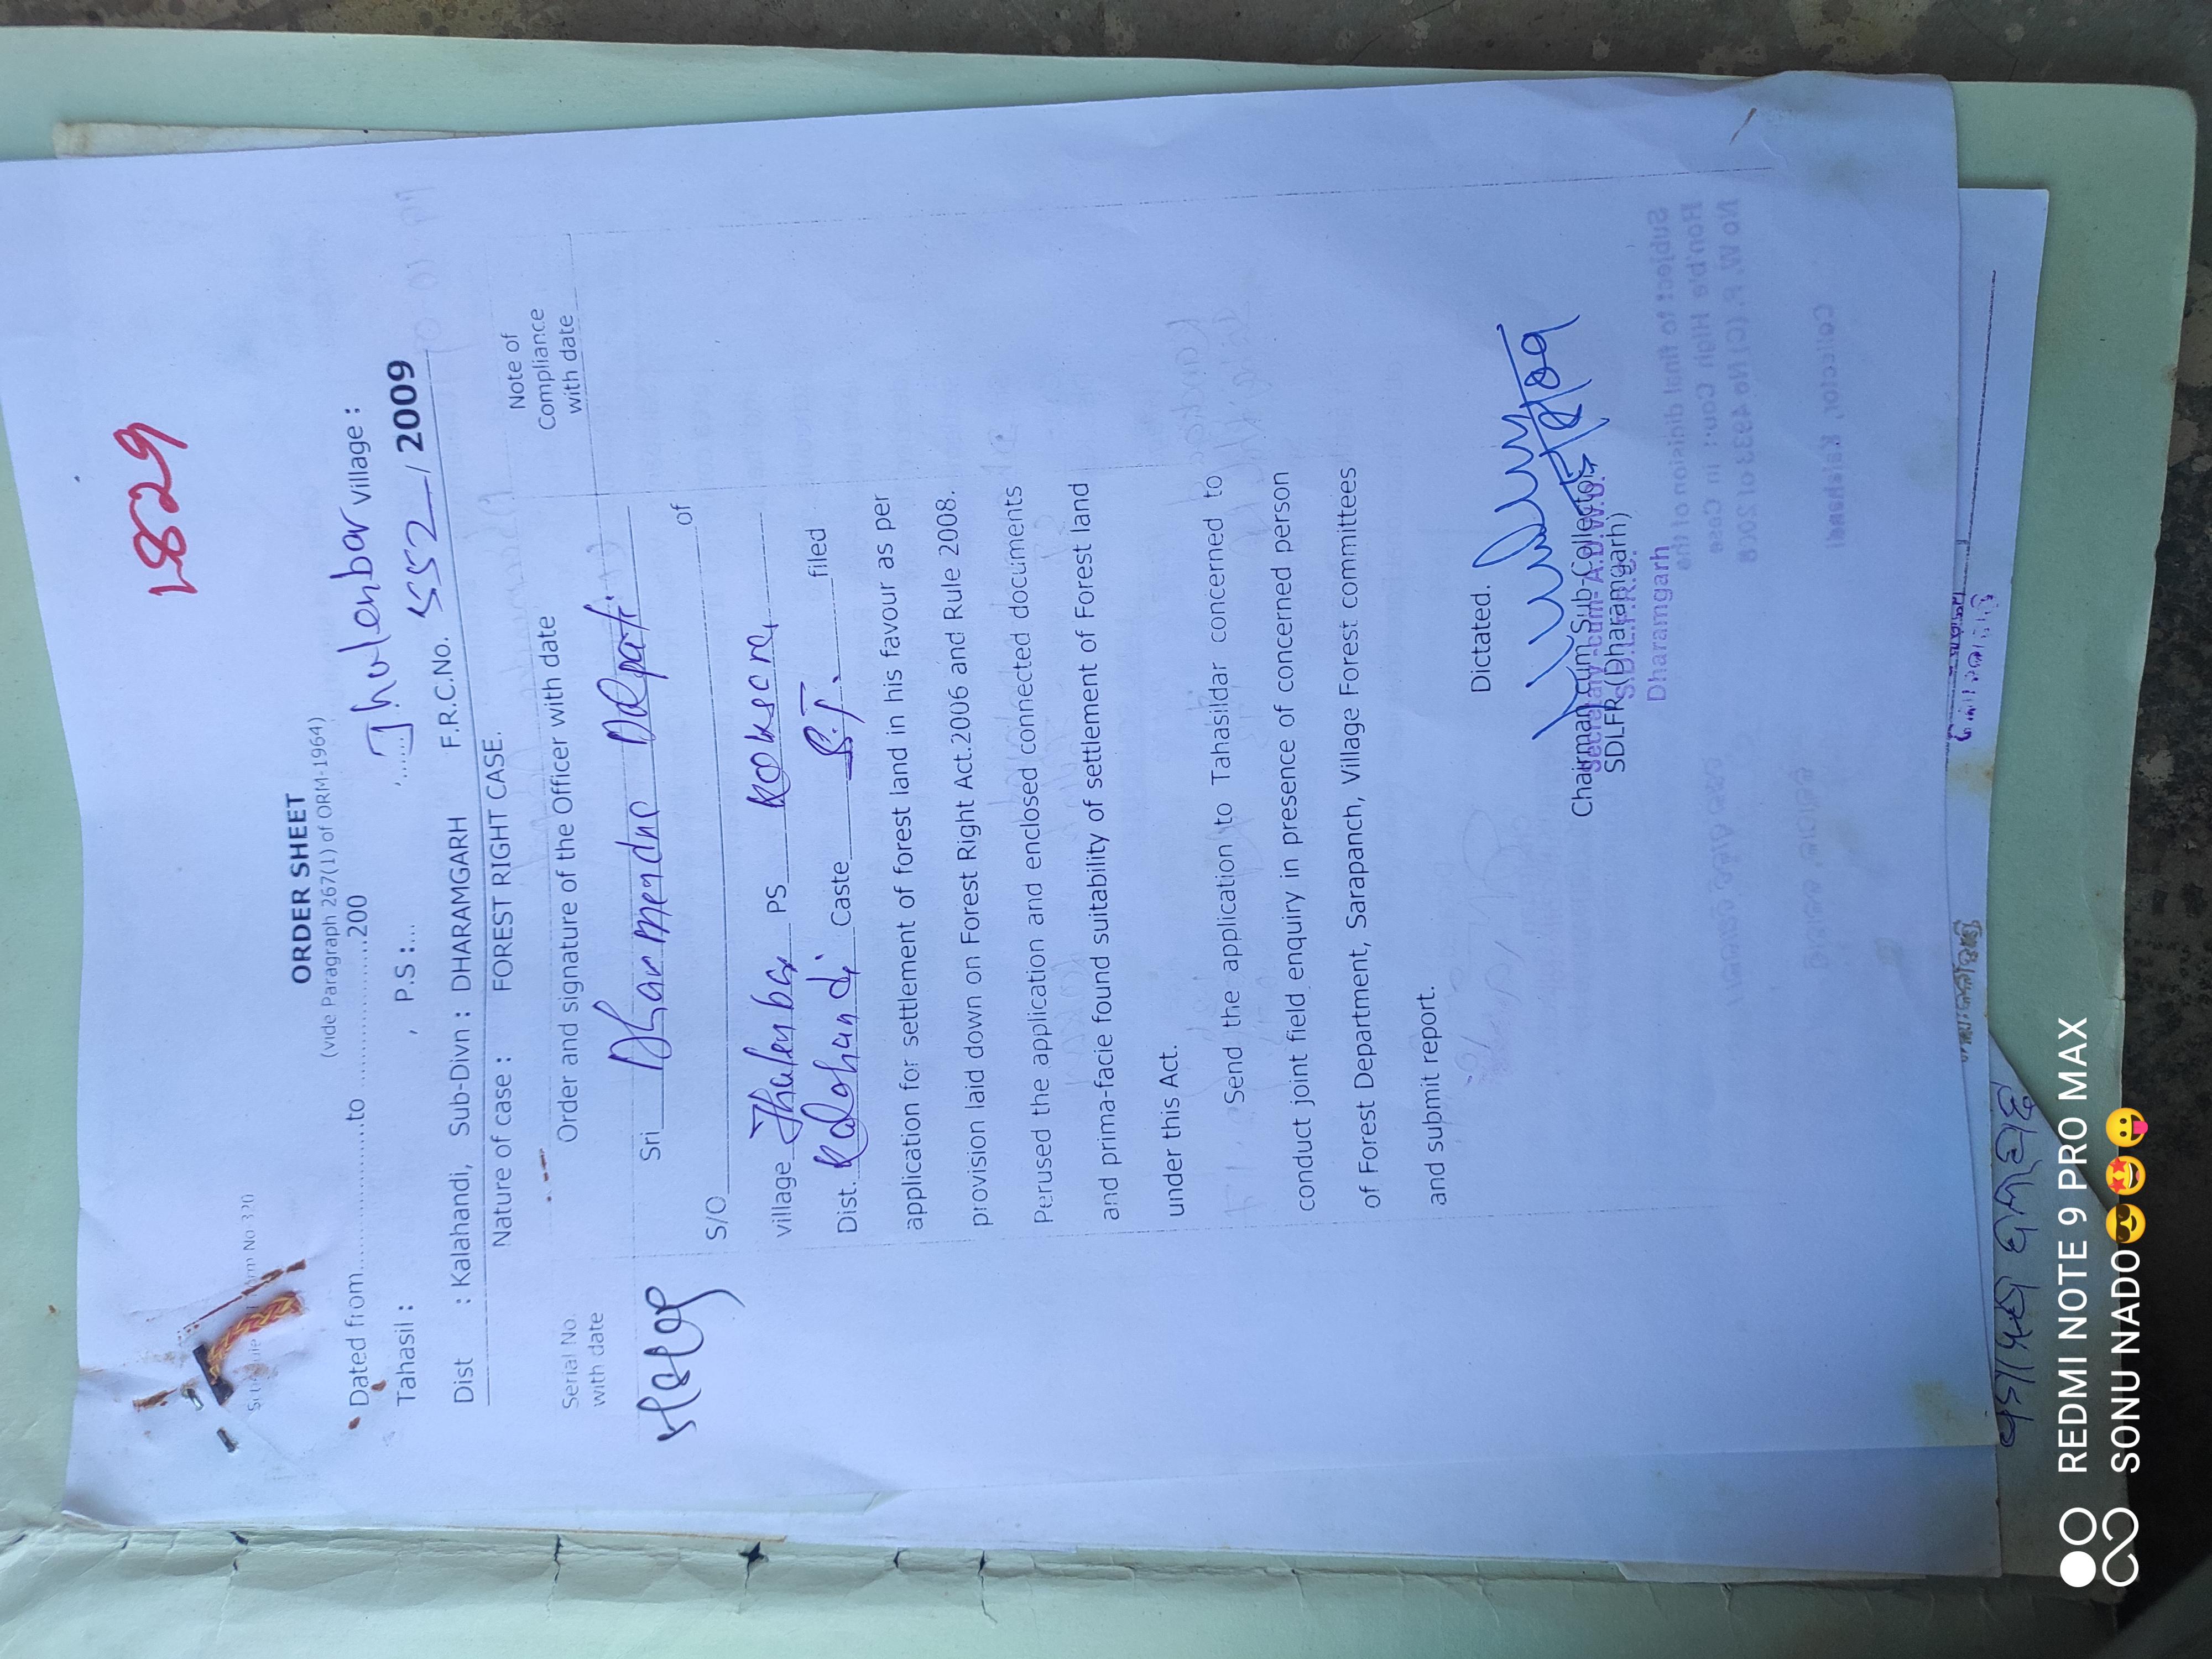 1829
ORDER SHEET
(vide Paragraph 267(1) of ORM-1964)
Dated from..............to ..............200
Jhulenbar village :
Tahasil : , P.S :...
F.R.C.No. 552 / 2009
Dist : Kalahandi, Sub-Divn : DHARAMGARH
Nature of case : FOREST RIGHT CASE.
Serial No. with date
Order and signature of the Officer with date
Note of Compliance with date
Sri Dharmendra
S/O of
village Jhulenbar PS Koksara
Dist. Kalahandi Caste S.T. filed
application for settlement of forest land in his favour as per
provision laid down on Forest Right Act.2006 and Rule 2008.
Perused the application and enclosed connected documents
and prima-facie found suitability of settlement of Forest land
under this Act.
Send the application to Tahasildar concerned to
conduct joint field enquiry in presence of concerned person
of Forest Department, Sarapanch, Village Forest committees
and submit report.
Dictated.
Chairman cum Sub-Collector
SDLFR (Dharamgarh)
Dharamgarh
REDMI NOTE 9 PRO MAX
SONU NADO😎🤩😛